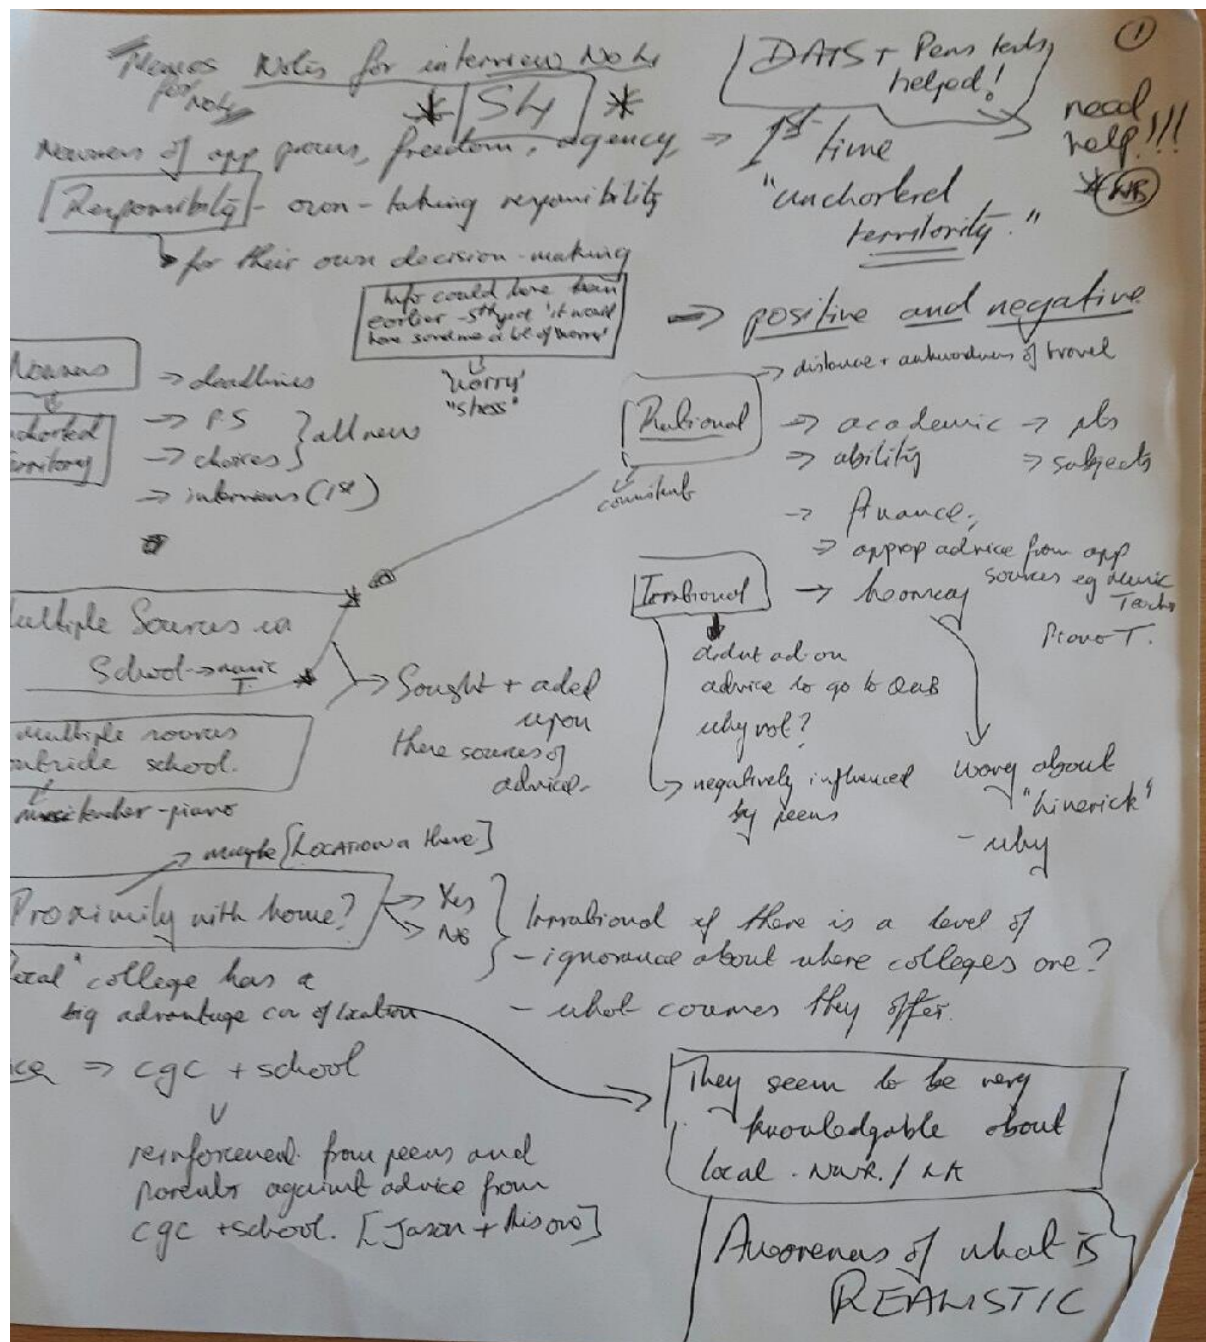 Notes for interview Notes
for Notes
* S4 *
DATS + Pers tests
helped!
①
need
help!!!
* NB
Newness of app process, freedom, agency, → 1st time
"unchartered
territority."
Responsibility - own - taking responsibility
for their own decision-making
Info could have been
earlier - 5th year 'it would
have saved me a bit of worry'
'worry'
"stress"
⇒ positive and negative
→ distance + awkwardness of travel
Newness
→ deadlines
→ P.S
→ choices } all new
→ interviews (1st)
territory
Rational → academic → pts
→ ability → subjects
→ finance,
→ approp advice from app
sources eg Music
Piano T.
Irrational → hearsay
didnt act on
advice to go to QUB
why not?
→ negatively influenced
by peers
worry about
"Limerick"
- why
ultiple Sources in
School → music
T.
→ Sought + acted
upon
these sources of
advice.
multiple sources
school.
teacher - piano
→ maybe [LOCATION a theme]
Proximity with home? → Yes
→ No
Irrational if there is a level of
- ignorance about where colleges are?
- what courses they offer.
ocal" college has a
big advantage cos of location
⇒ cgc + school
reinforcement from peers and
parents against advice from
cgc + school.
They seem to be very
knowledgable about
local. NWR. / LK
Awareness of what is
REALISTIC